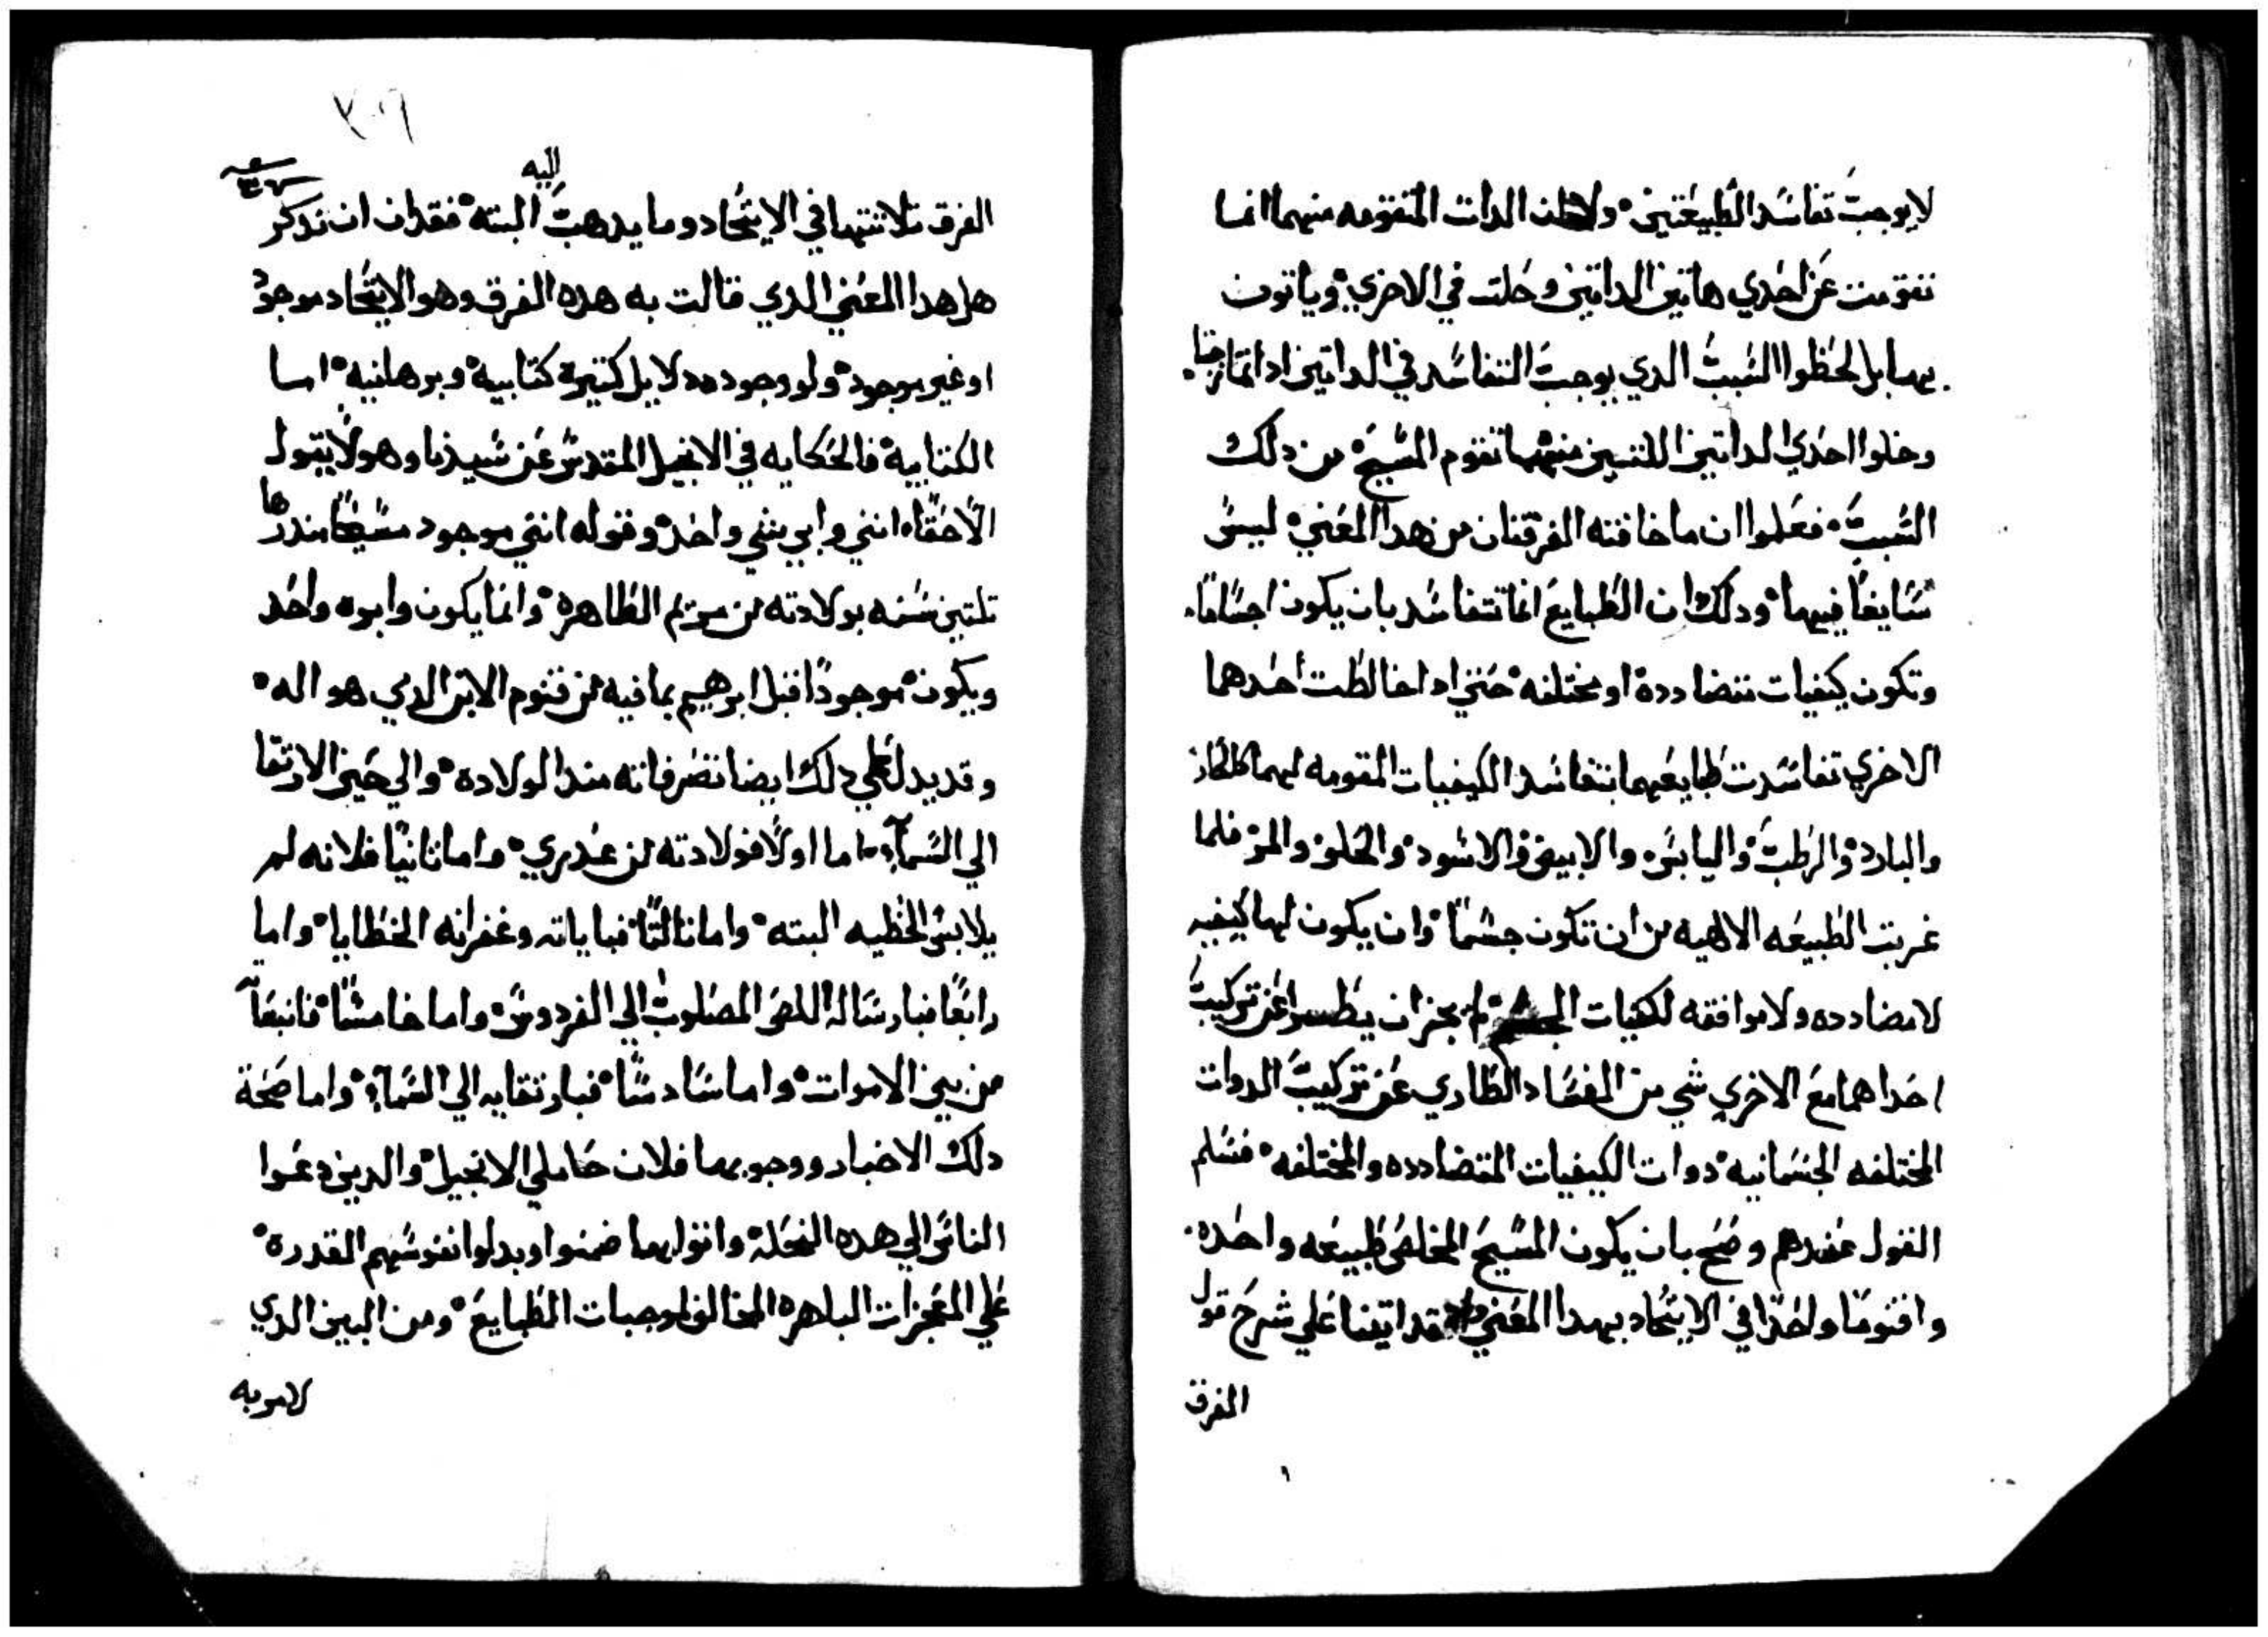 لا يوجب تفاسد الطبيعتين ولا الدات المتقومه منهما انما
تتقومت عن احدي هاتين الداتين وحلت في الاخري وياتون
بهما بل لحظوا السبب الدي يوجب التفاسد في الداتين ادا تمازجتا
وخلوا احدي الداتين اللتين منهما تقوم المسيح من دلك
السبب فعلموا ان ما خافته الفرقتان من هدا المعني ليس
سايغا فيهما ودلك ان الطبايع انما تتفاسد بان يكون اجساما
وتكون كيفيات متضادده او مختلفه حتي ادا خالطت احدهما
الاخري تفاسدت طبايعهما بتفاسد الكيفيات المقومه لهما كالحار
والبارد والرطب واليابس والابيض والاسود والحلو والمر فلما
عريت الطبيعه الالهيه من ان تكون جسما وان يكون لها كيفيه
لا مضادده ولا موافقه لكيفيات الجسم لم يجز ان يطسوا عن تركيب
احداهما مع الاخري شي من الفساد الطاري عن تركيب الدوات
المختلفه الجسمانيه دوات الكيفيات المتضادده والمختلفه فسلم
القول عندهم وصح بان يكون المسيح المخلص طبيعه واحده
واقنوما واحدا في الايتحاد بهدا المعني فقد اتينا علي شرح قول
الفرق
٢٠٧
الفرق تلاتتها في الايتحاد وما يدهب اليه البته فقد ان ان ندكر
هل هدا المعني الدي قالت به هده الفرق وهو الايتحاد موجود
او غير موجود ولو وجوده دلايل كتيرة كتابية وبرهانيه اما
الكتابية فالحكايه في الانجيل المقدس عن سيدنا وهو لا يقول
الا حقا انني وابي شي واحد وقوله انني موجود مسيحا مند رها
تلتين سنه بولادته من مريم الطاهره وانما يكون وابوه واحد
ويكون موجودا قبل ابرهيم بما فيه من قنوم الابن الدي هو اله
وقد يدل علي دلك ايضا تصرفاته مند الولاده والي حين الارتقا
الي السمآء اما اولا فولادته من عدري واما تانيا فلانه لم
يلابس الخطيه البته واما تالتا فباياته وغفرانه الخطايا واما
رابعا فبارساله اللص المصلوب الي الفردوس واما خامسا فانبعاته
من بين الاموات واما سادسا فبارتقايه الي السمآء واما صحة
دلك الاخبار ووجوبها فلان حاملي الانجيل والدين دعوا
الناس الي هده النحلة واتوا بها ضمنوا وبدلوا نفوسهم القدرة
علي المعجزات الباهره المخالف لموجبات الطبايع ومن البين الدي
لامريه